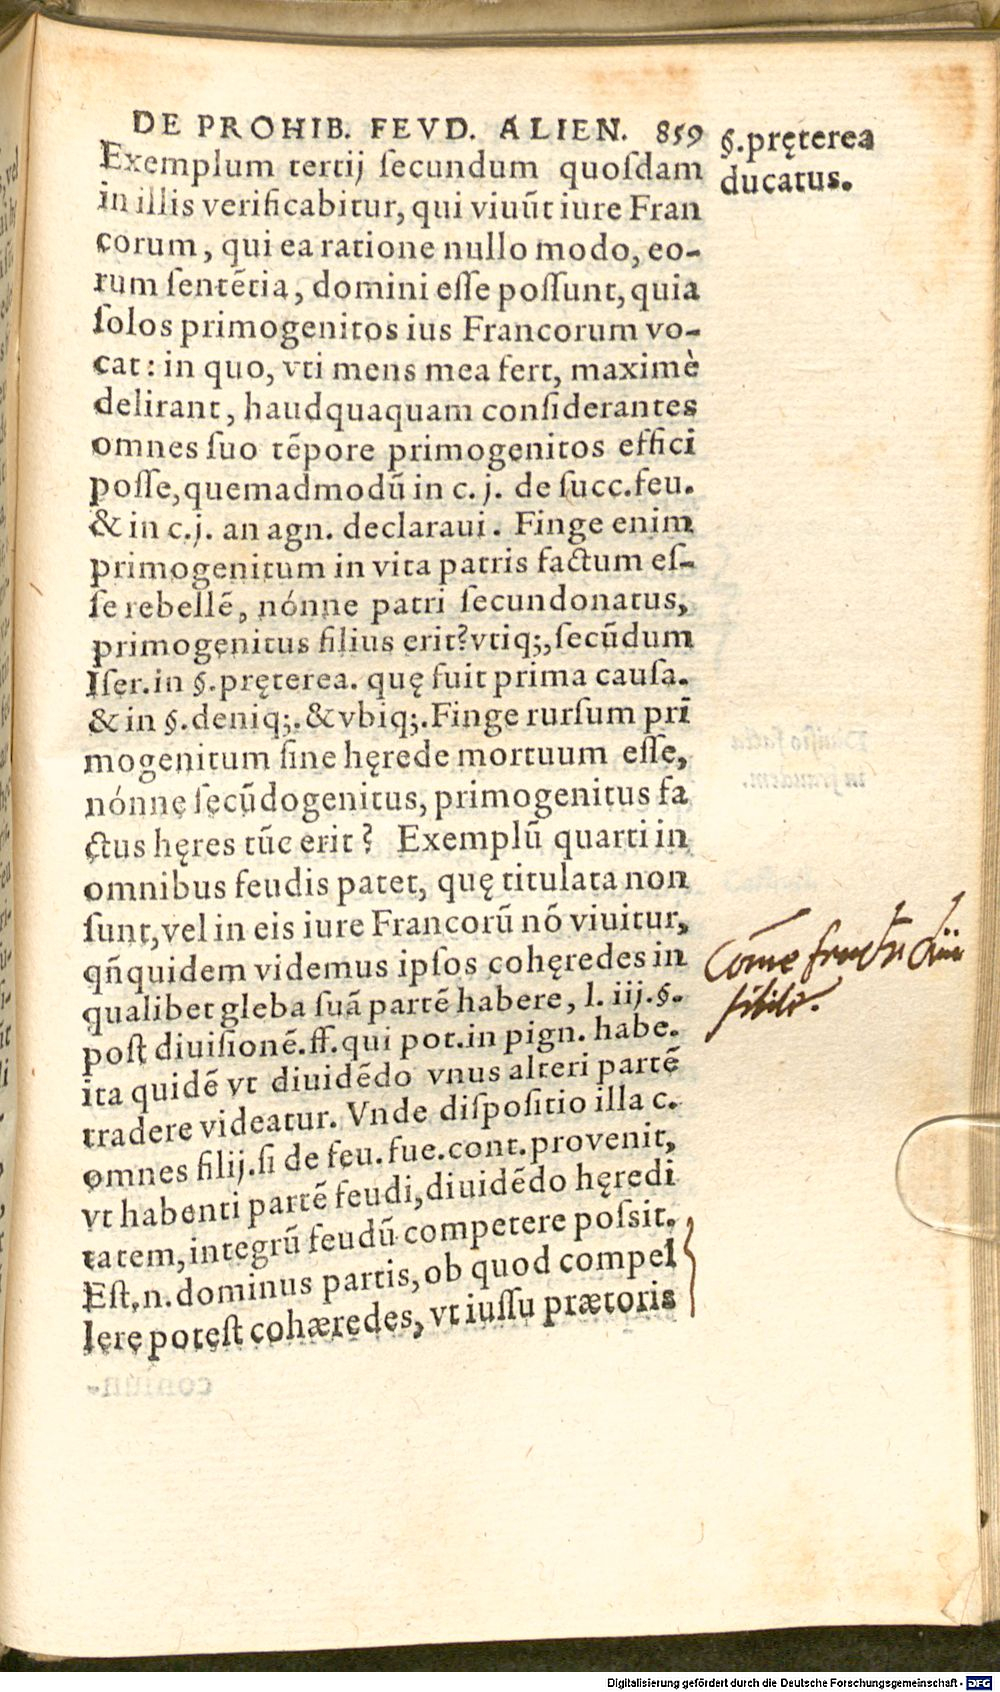 DE PROHIB. FEVD. ALIEN. 859
§. pręterea
ducatus.
Exemplum tertij ſecundum quoſdam
in illis verificabitur, qui viuũt iure Fran
corum, qui ea ratione nullo modo, eo-
rum ſentẽtia, domini eſſe poſſunt, quia
ſolos primogenitos ius Francorum vo-
cat: in quo, vti mens mea fert, maximè
delirant, haudquaquam conſiderantes
omnes ſuo tẽpore primogenitos effici
poſſe, quemadmodũ in c. j. de ſucc. feu.
& in c. j. an agn. declaraui. Finge enim
primogenitum in vita patris factum eſ-
ſe rebellẽ, nónne patri ſecundonatus,
primogenitus filius erit? vtiq;, ſecũdum
Iſer. in §. pręterea. quę fuit prima cauſa.
& in §. deniq;. & vbiq;. Finge rurſum pri
mogenitum ſine hęrede mortuum eſſe,
nónne ſecũdogenitus, primogenitus fa
ctus hęres tũc erit? Exemplũ quarti in
omnibus feudis patet, quę titulata non
ſunt, vel in eis iure Francorũ nõ viuitur,
qñquidem videmus ipſos cohęredes in
qualibet gleba ſuã partẽ habere, l. iij. §.
poſt diuiſionẽ. ff. qui pot. in pign. habe.
ita quidẽ vt diuidẽdo vnus alteri partẽ
tradere videatur. Vnde diſpoſitio illa c.
omnes filij. ſi de feu. fue. cont. provenit,
vt habenti partẽ feudi, diuidẽdo hęredi
tatem, integrũ feudũ competere poſsit.
Eſt. n. dominus partis, ob quod compel
lere poteſt cohæredes, vt iuſſu prætoris
Come
Digitalisierung gefördert durch die Deutsche Forschungsgemeinschaft - DFG